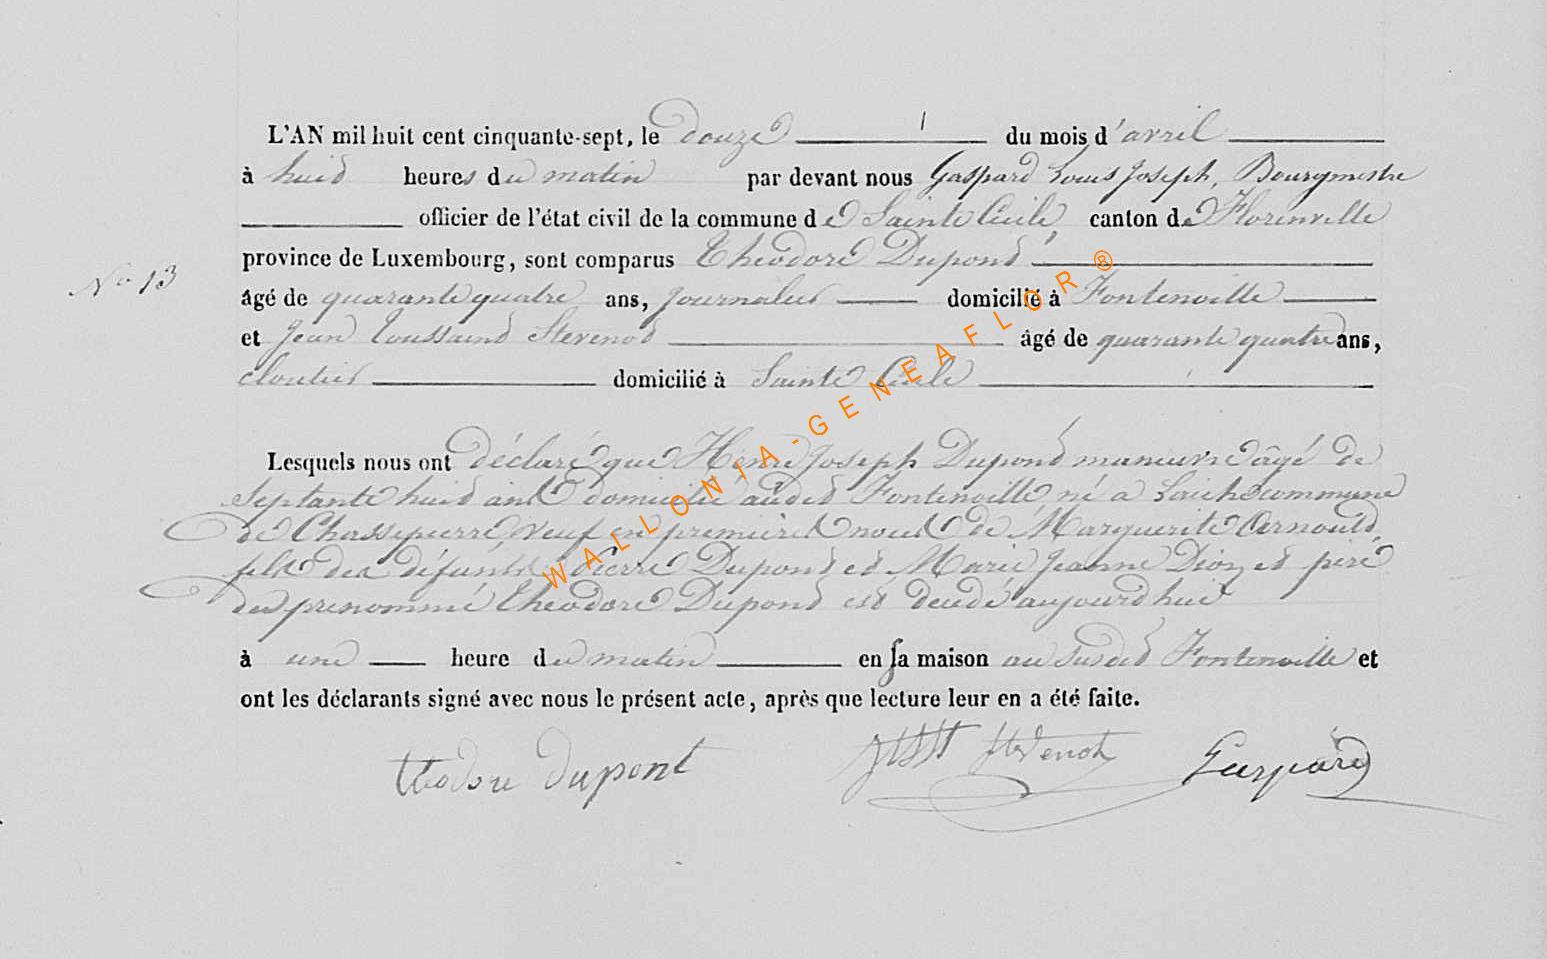 L'AN mil huit cent cinquante-sept, le douze du mois d'avril
à huid heures du matin par devant nous Gaspard Louis Joseph, Bourgmestre
officier de l'état civil de la commune de Sainte Cécile, canton de Florenville
province de Luxembourg, sont comparus Théodore Dupond
No 13
âgé de quarante quatre ans, journalier domicilié à Fontenoille
et Jean Toussaind Stevenod âgé de quarante quatre ans,
cloutier domicilié à Sainte Cécile
Lesquels nous ont déclaré que Henri Joseph Dupond manœuvre âgé de
septante huid ans domicilié audid Fontenoille né a Laiche commune
de Chassepierre veuf en premières noces de Marguerite Arnould
fils des défunts Pierre Dupond et Marie Jeanne Dion et père
du prenommé Théodore Dupond est decedé aujourd'hui
à une heure du matin en sa maison au susdid Fontenoille et
ont les déclarants signé avec nous le présent acte, après que lecture leur en a été faite.
théodore dupont Stevenot Gaspard
WALLONIA-GENEAFLOR®